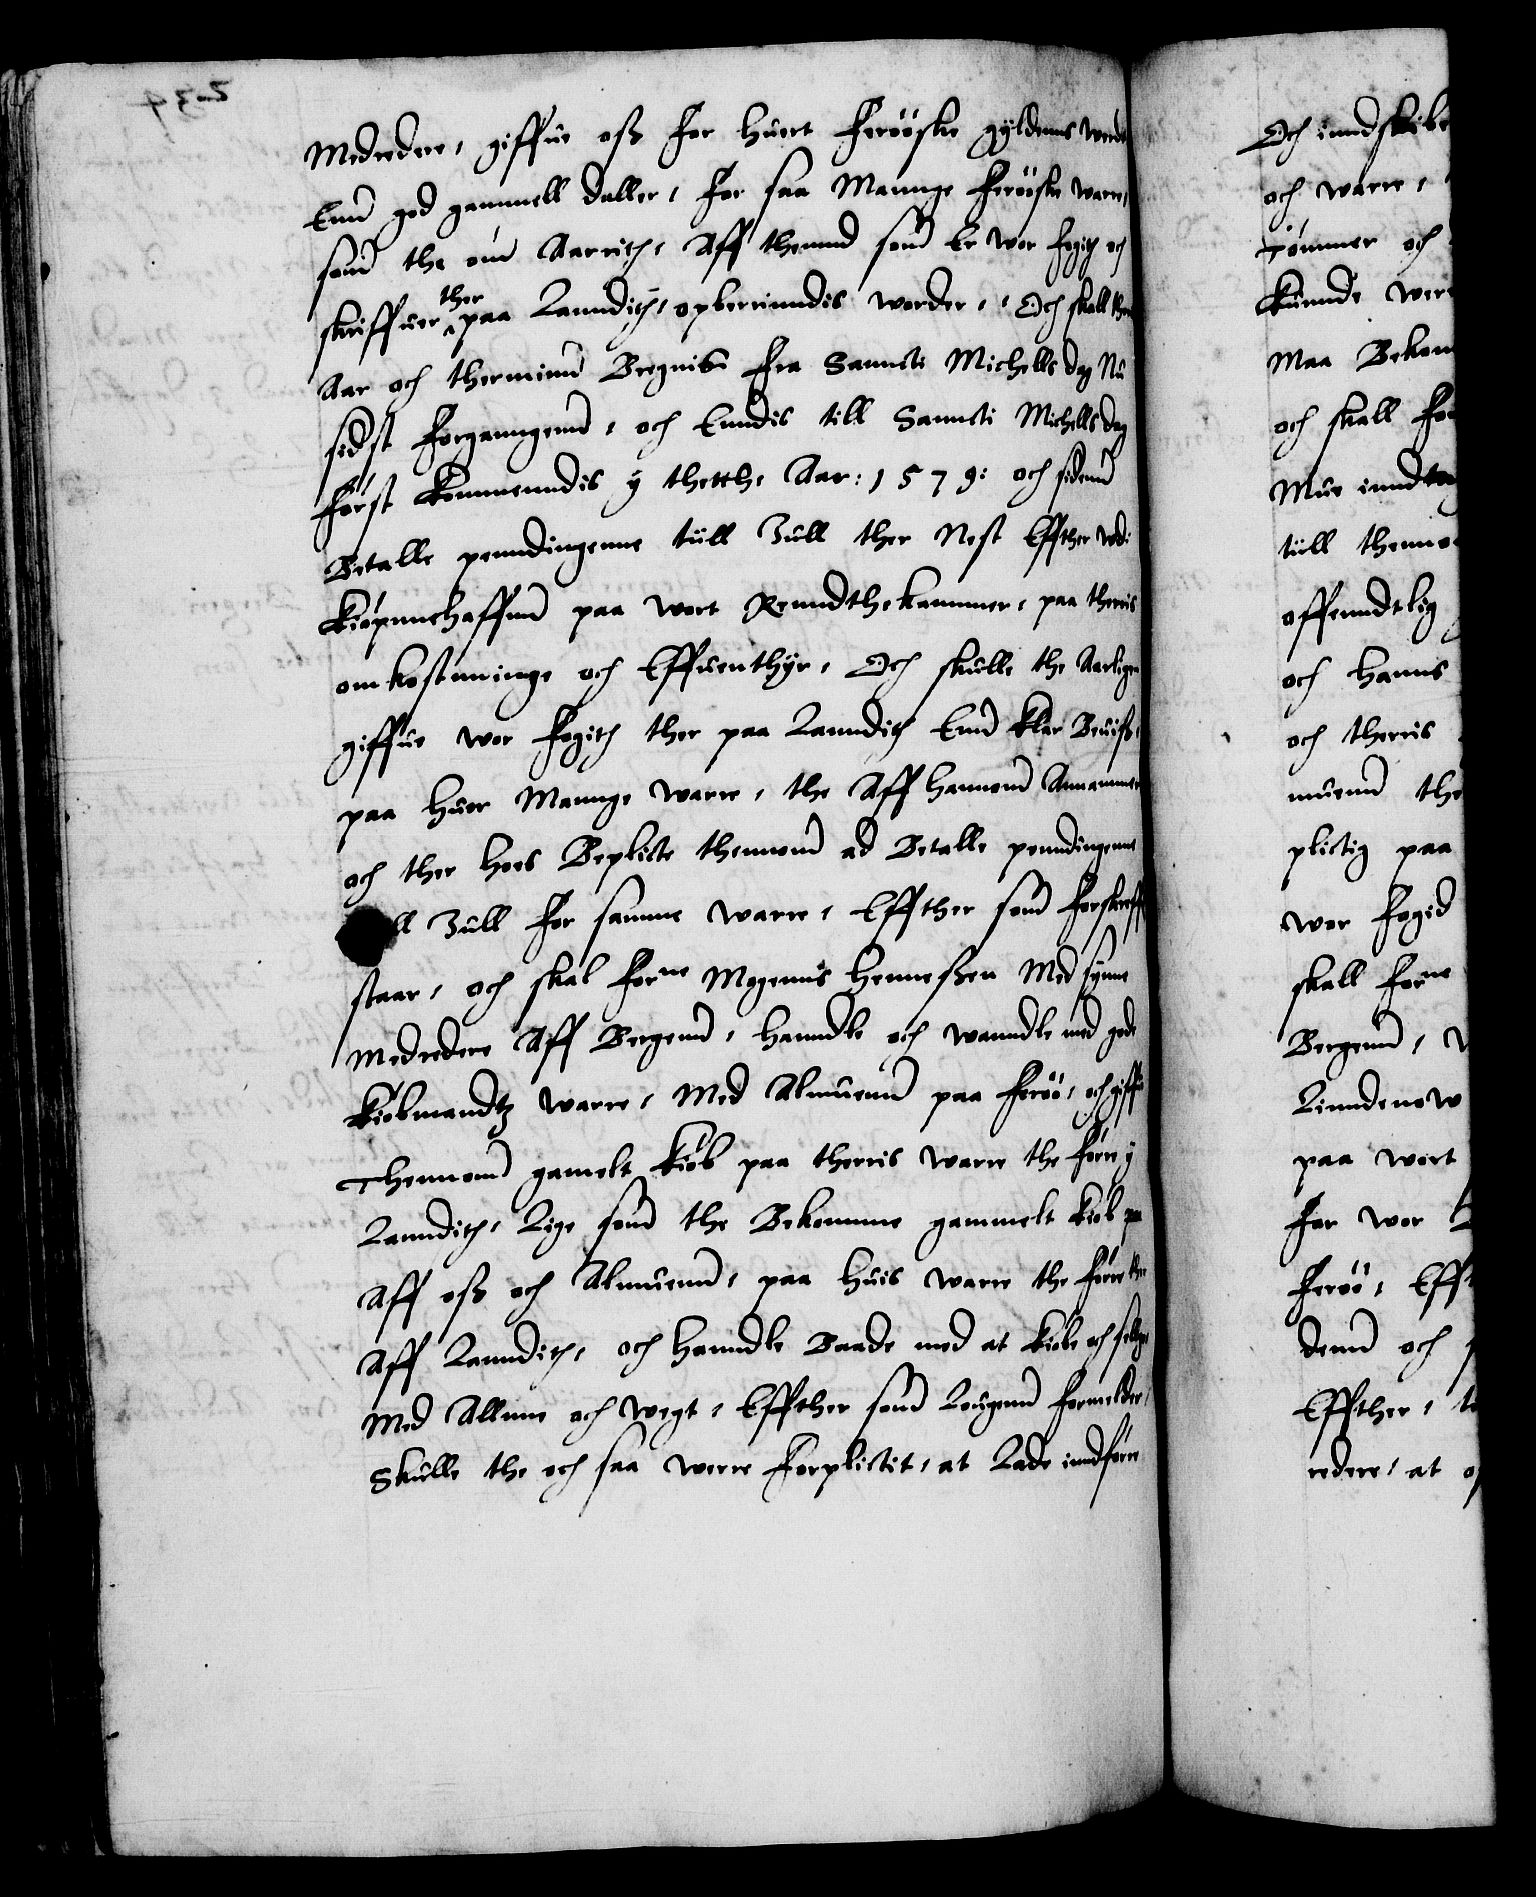 Medredere, giffue oß for huert Ferööske gyldenns werdt
Enn god gammell daller, for saa Mannge Feröiske warre,
som the om Aarrith, Aff thennd som Er wor fogith och
skriffuer ther paa Lanndith, opberinndis worder, Och skall thris
Aar och therminn Begnis fra Sancti Michells dag Nu
sidst forganngenn, och Enndis till Sancti Michells dag
först kommenndis y thette Aar: 1579: och sidenn
Betalle penndingenne till Jull ther Nest Effther vdi
Kiöpnnehaffnn paa wort Renndthekammer, paa therris
omkostninge och Effuenthyr, Och skulle the Aarligen
giffue wor fogith ther paa Lanndith Enn klar Beuiß,
paa huor Mannge warre, the Aff hannom Annammer
och ther hoes Beplicte thennom ad Betalle penndingenne
till Jull for samme warre, Effther som forskreffuit
staar, och skal forne Mogenns Henneßen Med synne
Medredere Aff Bergenn, hanndle och wanndle med gode
Kiöbmandtz warre, Med Almuenn paa Feröö, och giffue
Thennom gamelt kiöb paa therris warre the före y
Lanndith, Lige som the Bekomme gammelt kiöb paa
Aff oß och Almuenn, paa huis warre the förre ther
Aff Lanndith, och hanndle Baade med at kiöbe och sellge
Med Allnne och wegt, Effther som Lougenn formelder,
Skulle the och saa werre forplictit, at Lade inndföre
Och inndskibe
och warre,
Tömmer och
Kunnde were
Maa Bekom
och skall for
Mue inndtag
till thenno
offenndtlig
och hanns
och therris
muenn the
plictig paa
wor fogid
skall forne
Bergenn,
Linndenow
paa wort
for wor
Feröö, Efft
denn och
Effther,
redere, at